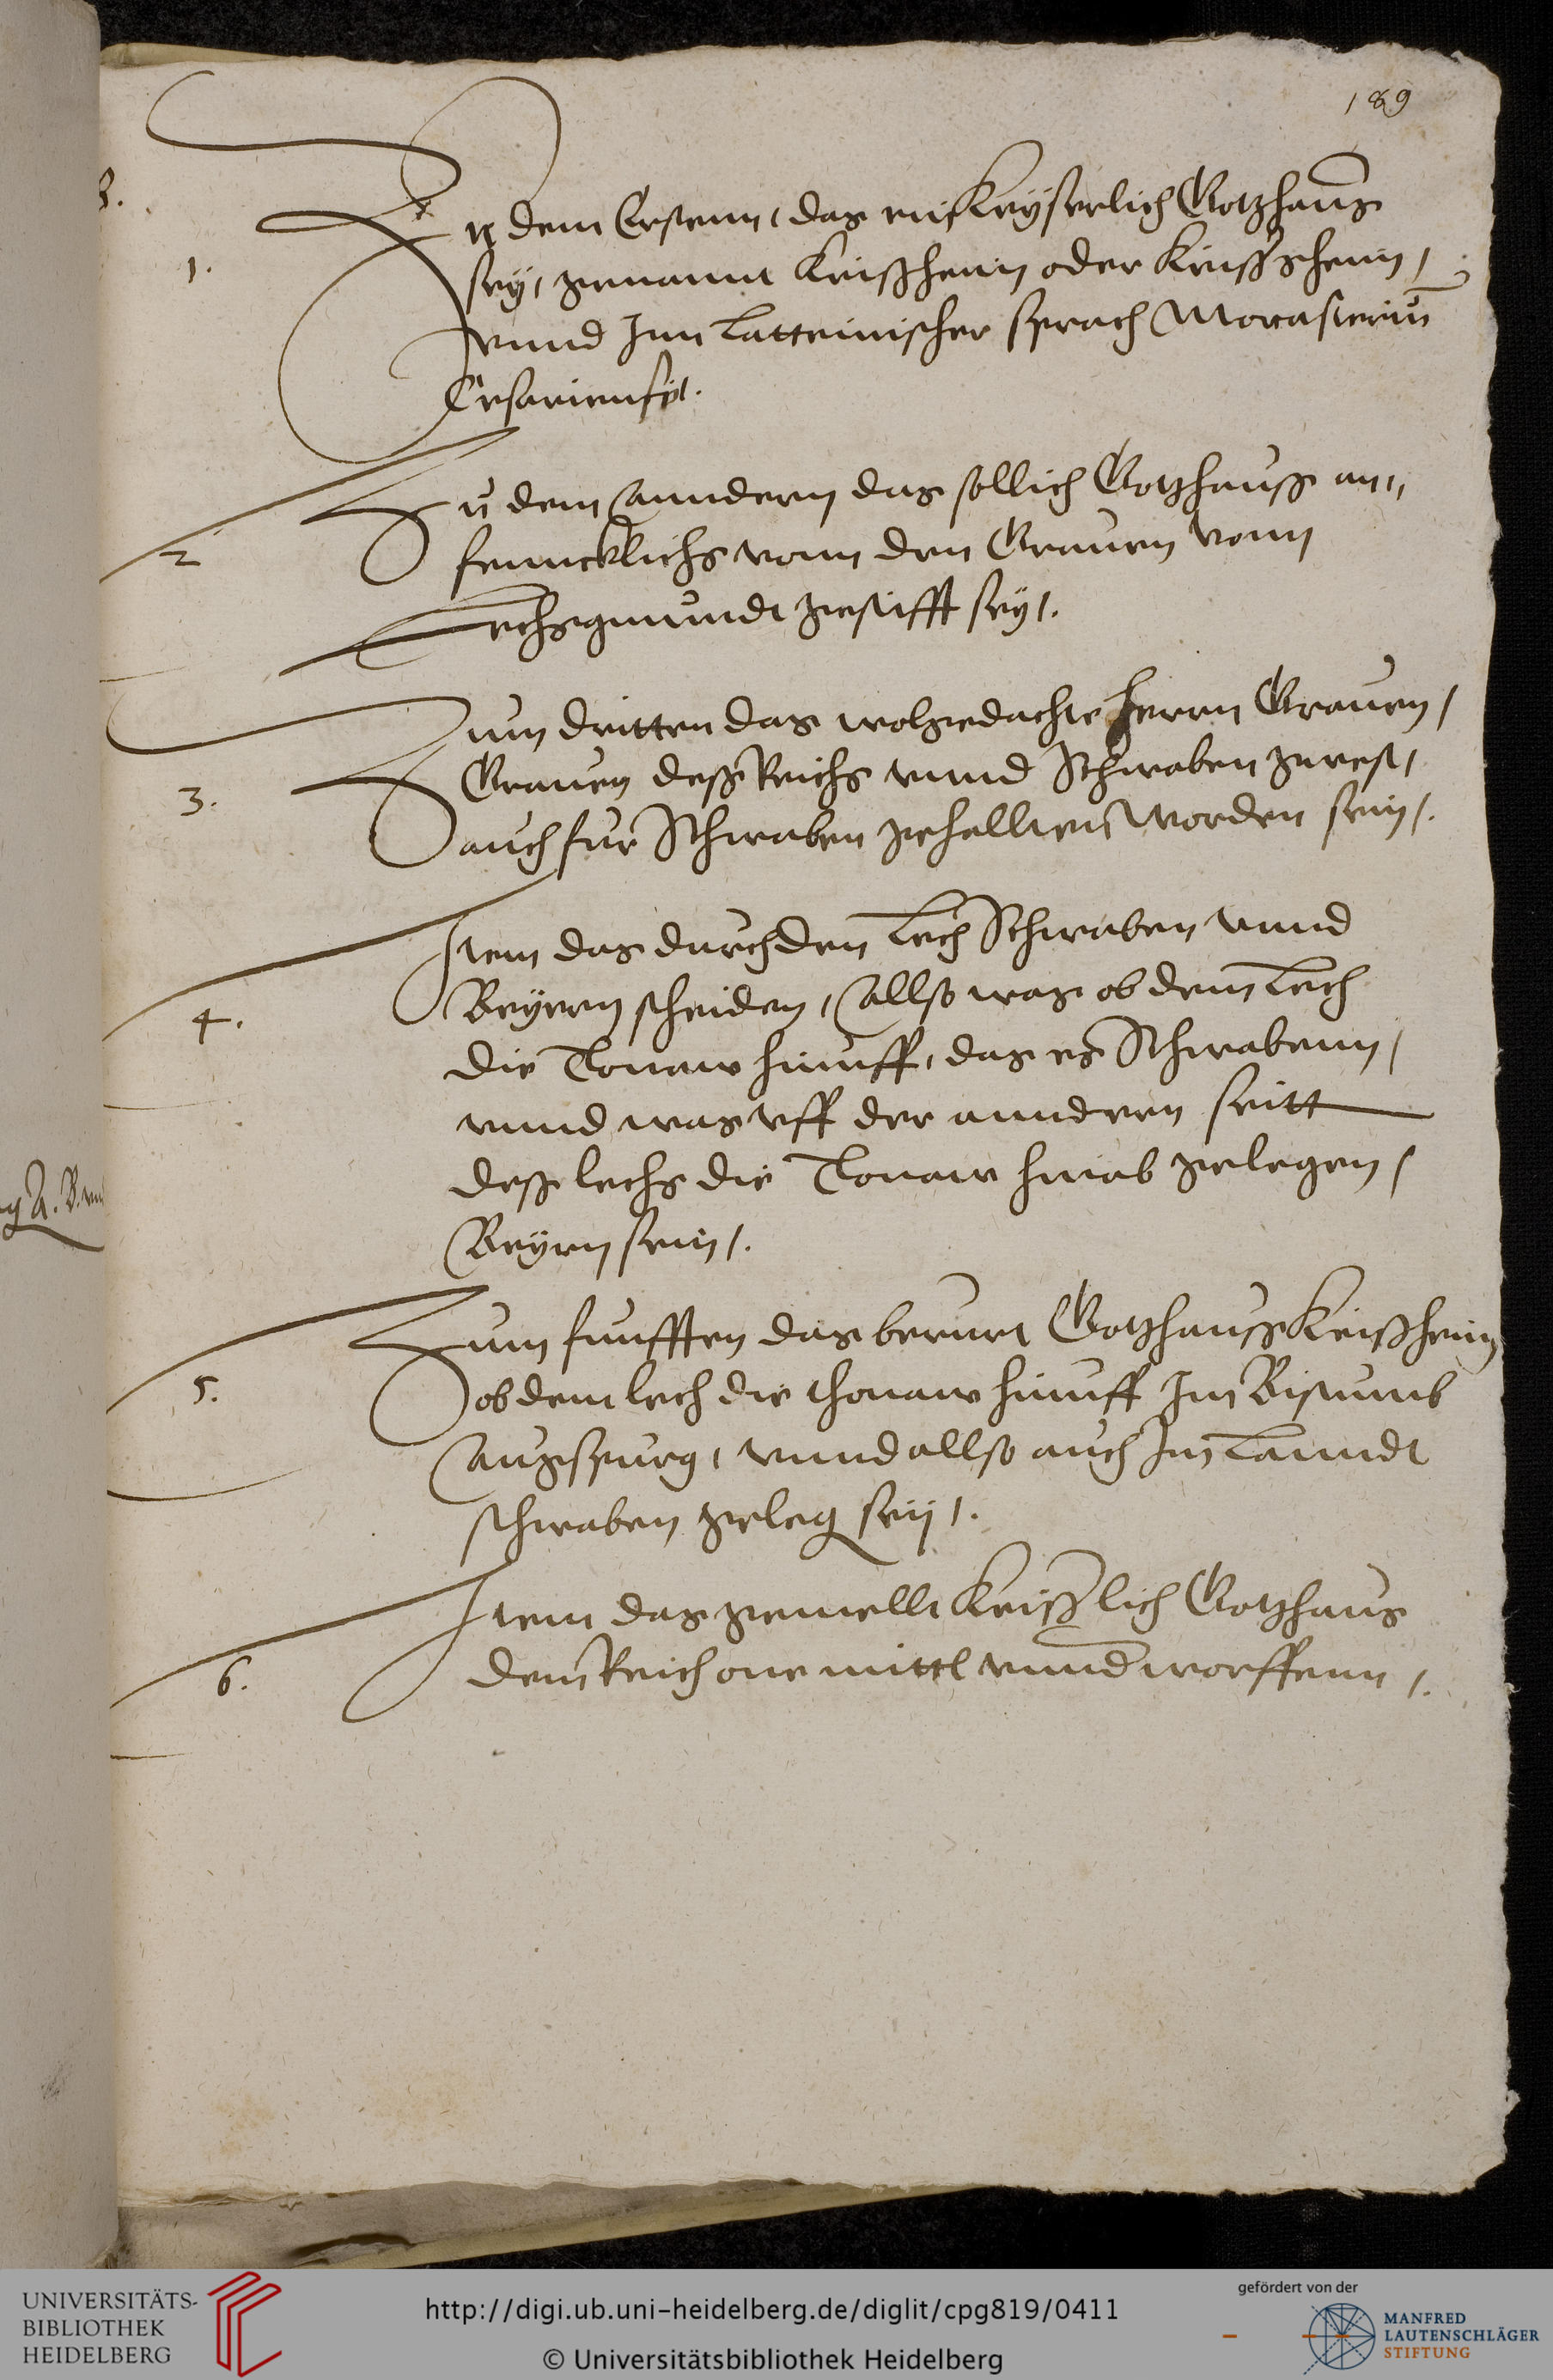 189
1.
Zu dem Erstenn, das ein Keyserlich Gotzhaus
sey, genannt Keißheim oder Keißsheim,
vnnd Inn Latteinischer sprach Monasteriu
Cesariensis.
2
Zu dem Anndern das sollich Gotzhauß an„
fenncklichs vonn den Grauen vonn
Lechsgmundt gestifft sey.
3.
Zum dritten das wolgedachte Herrn Grauen,
Grauen deß Reichs vnnd Schwaben gwest,
auch fur Schwaben gehallten worden sein.
4.
Item das durch den Lech Schwaben vnnd
Beyern scheiden, Allso was ob dem Lech
die Tonaw hinuff, das es Schwabenn,
vnnd was vff der annderen seitt
deß lechs die Tonaw hinab gelegen,
Beyrn sein.
5.
Zum funfften das berurt Gotzhauß Keißheim
ob dem lech die thonaw hinuff Im Bistumb
Augspurg, vnnd allso auch Im Lanndt
schwaben geleg sey.
6.
Item das gemellt Keißlich Gotzhaus
dem Reich one mittl vnnderworffenn.
UNIVERSITÄTS-
BIBLIOTHEK
HEIDELBERG
http://digi.ub.uni-heidelberg.de/diglit/cpg819/0411
© Universitätsbibliothek Heidelberg
gefördert von der
MANFRED
LAUTENSCHLÄGER
STIFTUNG